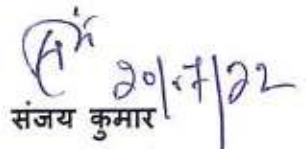 20/07/22
संजय कुमार